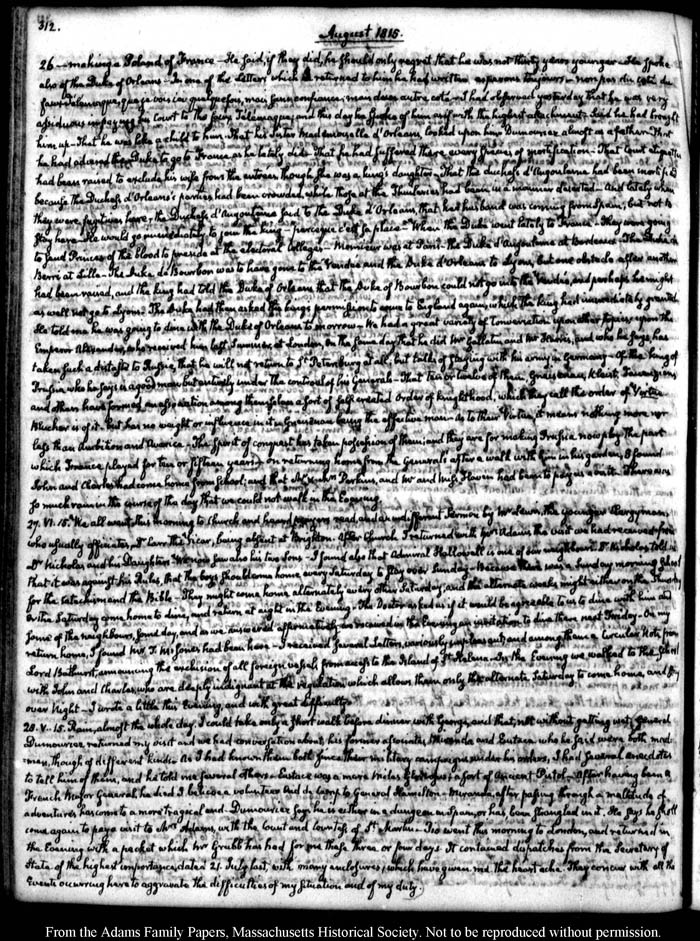 312.
August 1815.
26 — making a Poland of France — He said, if they did, he should only regret that he was not thirty years younger. He spoke
also of the Duke of Orleans — In one of the Letters which he returned to him he had written esperons toujours — non pas du coté du
that he was very
assiduous in paying his Court to and this day he spoke of him as of with the highest attachment. Said he had brought
him up — That he was like a child to him. That his Sister Mademoiselle d'Orleans looked upon him Dumourier almost as a father — That
he had advised the Duke to go to France as he lately did. That he had suffered there every species of mortification — That Court etiquette
had been raised to exclude his wife from the entrees though she was a king's daughter — That the duchess d'Angouleme had been mortified
because the Duchess d'Orleans's parties had been crowded, while those at the Thuileries had been in a manner deserted — And lately when
they were fugitives here, the Duchess d'Angouleme said to the Duke d'Orleans, that her husband was coming from Spain; but not to
stay here — He would go immediately to join the king — parceque c'est sa place — When the Duke went lately to France — They were going
to send Princes of the blood to preside at the Electoral Colleges — Monsieur was at Paris — the Duke d'Angouleme at Bordeaux — The Duke de
Berri at Lille — The Duke de Bourbon was to have gone to the Vendée and the Duke d'Orleans to Lyons, but one obstacle after another
had been raised, and the king had told the Duke of Orleans that the Duke of Bourbon could not go into the Vendée, and perhaps he might
as well not go to Lyons. The Duke had then asked the king's permission to come to England again, which the king had immediately granted
He told me he was going to dine with the Duke of Orleans to-morrow — We had a great variety of conversation upon other topics, upon the
Emperor Alexander, who received him last Summer, at London, on the same day that he did Mr Gallatin and Mr Harris, and who he says has
taken such a distaste to Russia, that he will not return to St Petersburg at all, but talks of staying with his army in Germany — Of the king of
Prussia who he says is a good man but entirely under the controul of his Generals — That ten or twelve of them, Gneisenau, Kleist, Tauenzien
and others have formed an association among themselves a sort of self created order of knighthood, which they call the order of Vertue
Blucher is of it — but has no weight or influence in it — Gneisenau being the effective man — As to their Virtue, it means nothing more nor
less than Ambition and Avarice — The Spirit of conquest has taken possession of them; and they are for making Prussia now play the part
which France played for ten or fifteen years — on returning home from the Generals after a walk with him in his garden, I found
John and Charles had come home from School; and that Mr Perkins, and Mr and Miss had been to pay us a visit. There was
so much rain in the course of the day that we could not walk in the Evening.
27. VI. 15. We all went this morning to Church, and heard prayers read, and an indifferent Sermon by Mr Lewin, the younger Clergyman
who usually officiates, Dr Carr the Vicar, being absent at Brighton. After Church I returned with Mrs Adams the visit we had received from
Dr Nicholas and his Daughter. We now saw also his two sons — I found also that Admiral Hallowell is one of our neighbours. Dr Nicholas told us
that it was against his Rules, that the boys should come home every Saturday to stay over Sunday — Because there was a Sunday morning School
for the Catechism and the Bible — They might come home alternately every other Saturday, and the alternate weeks might either on the Thursday
or the Saturday come home to dine, and return at eight in the Evening. The Doctor asked us if it would be agreeable to us to dine with him and
some of the neighbours, some day, and as we answered affirmatively we received in the Evening an invitation to dine there next Friday. On my
return home, I found Mr T. W. Jones had been here — I received several Letters, variously unpleasant; and among them a circular Note, from
Lord Bathurst, announcing the exclusion of all foreign vessels from access to the Island of St Helena — In the Evening we walked to the School
with John and Charles, who are deeply indignant at the regulation which allows them only the alternate Saturday to come home, and stay
over Night — I wrote a little this Evening, and with great difficulty.
28. V. 15. Rain, almost the whole day. I could take only a short walk before dinner with George, and that, not without getting wet, General
Dumourier returned my visit and we had conversation about his former associates Miranda and Eustace who he said were both mad-
men, though of different kinds. As I had known them both since their military campaigns under his orders, I had several anecdotes
to tell him of them, and he told me several others. Eustace was a mere Miles Gloriosus a sort of Ancient Pistol — After having been a
French Major General, he died I believe a volunteer Aid de Camp to General Hamilton — Miranda, after passing through a multitude of
adventures has come to a more tragical end. Dumourier says he is either in a dungeon in Spain, or has been strangled in it. He says he shall
come again to pay a visit to Mrs Adams, with the Count and Countess of St Martin. I so went this morning to London, and returned in
the Evening with a packet which Mr Grubb has had for me these three or four days. It contained dispatches from the Secretary of
State of the highest importance, dated 21. July last, with many enclosures, which have given me the heart ache. They concur with all the
Events occurring here to aggravate the difficulties of my situation and of my duty.
From the Adams Family Papers, Massachusetts Historical Society. Not to be reproduced without permission.